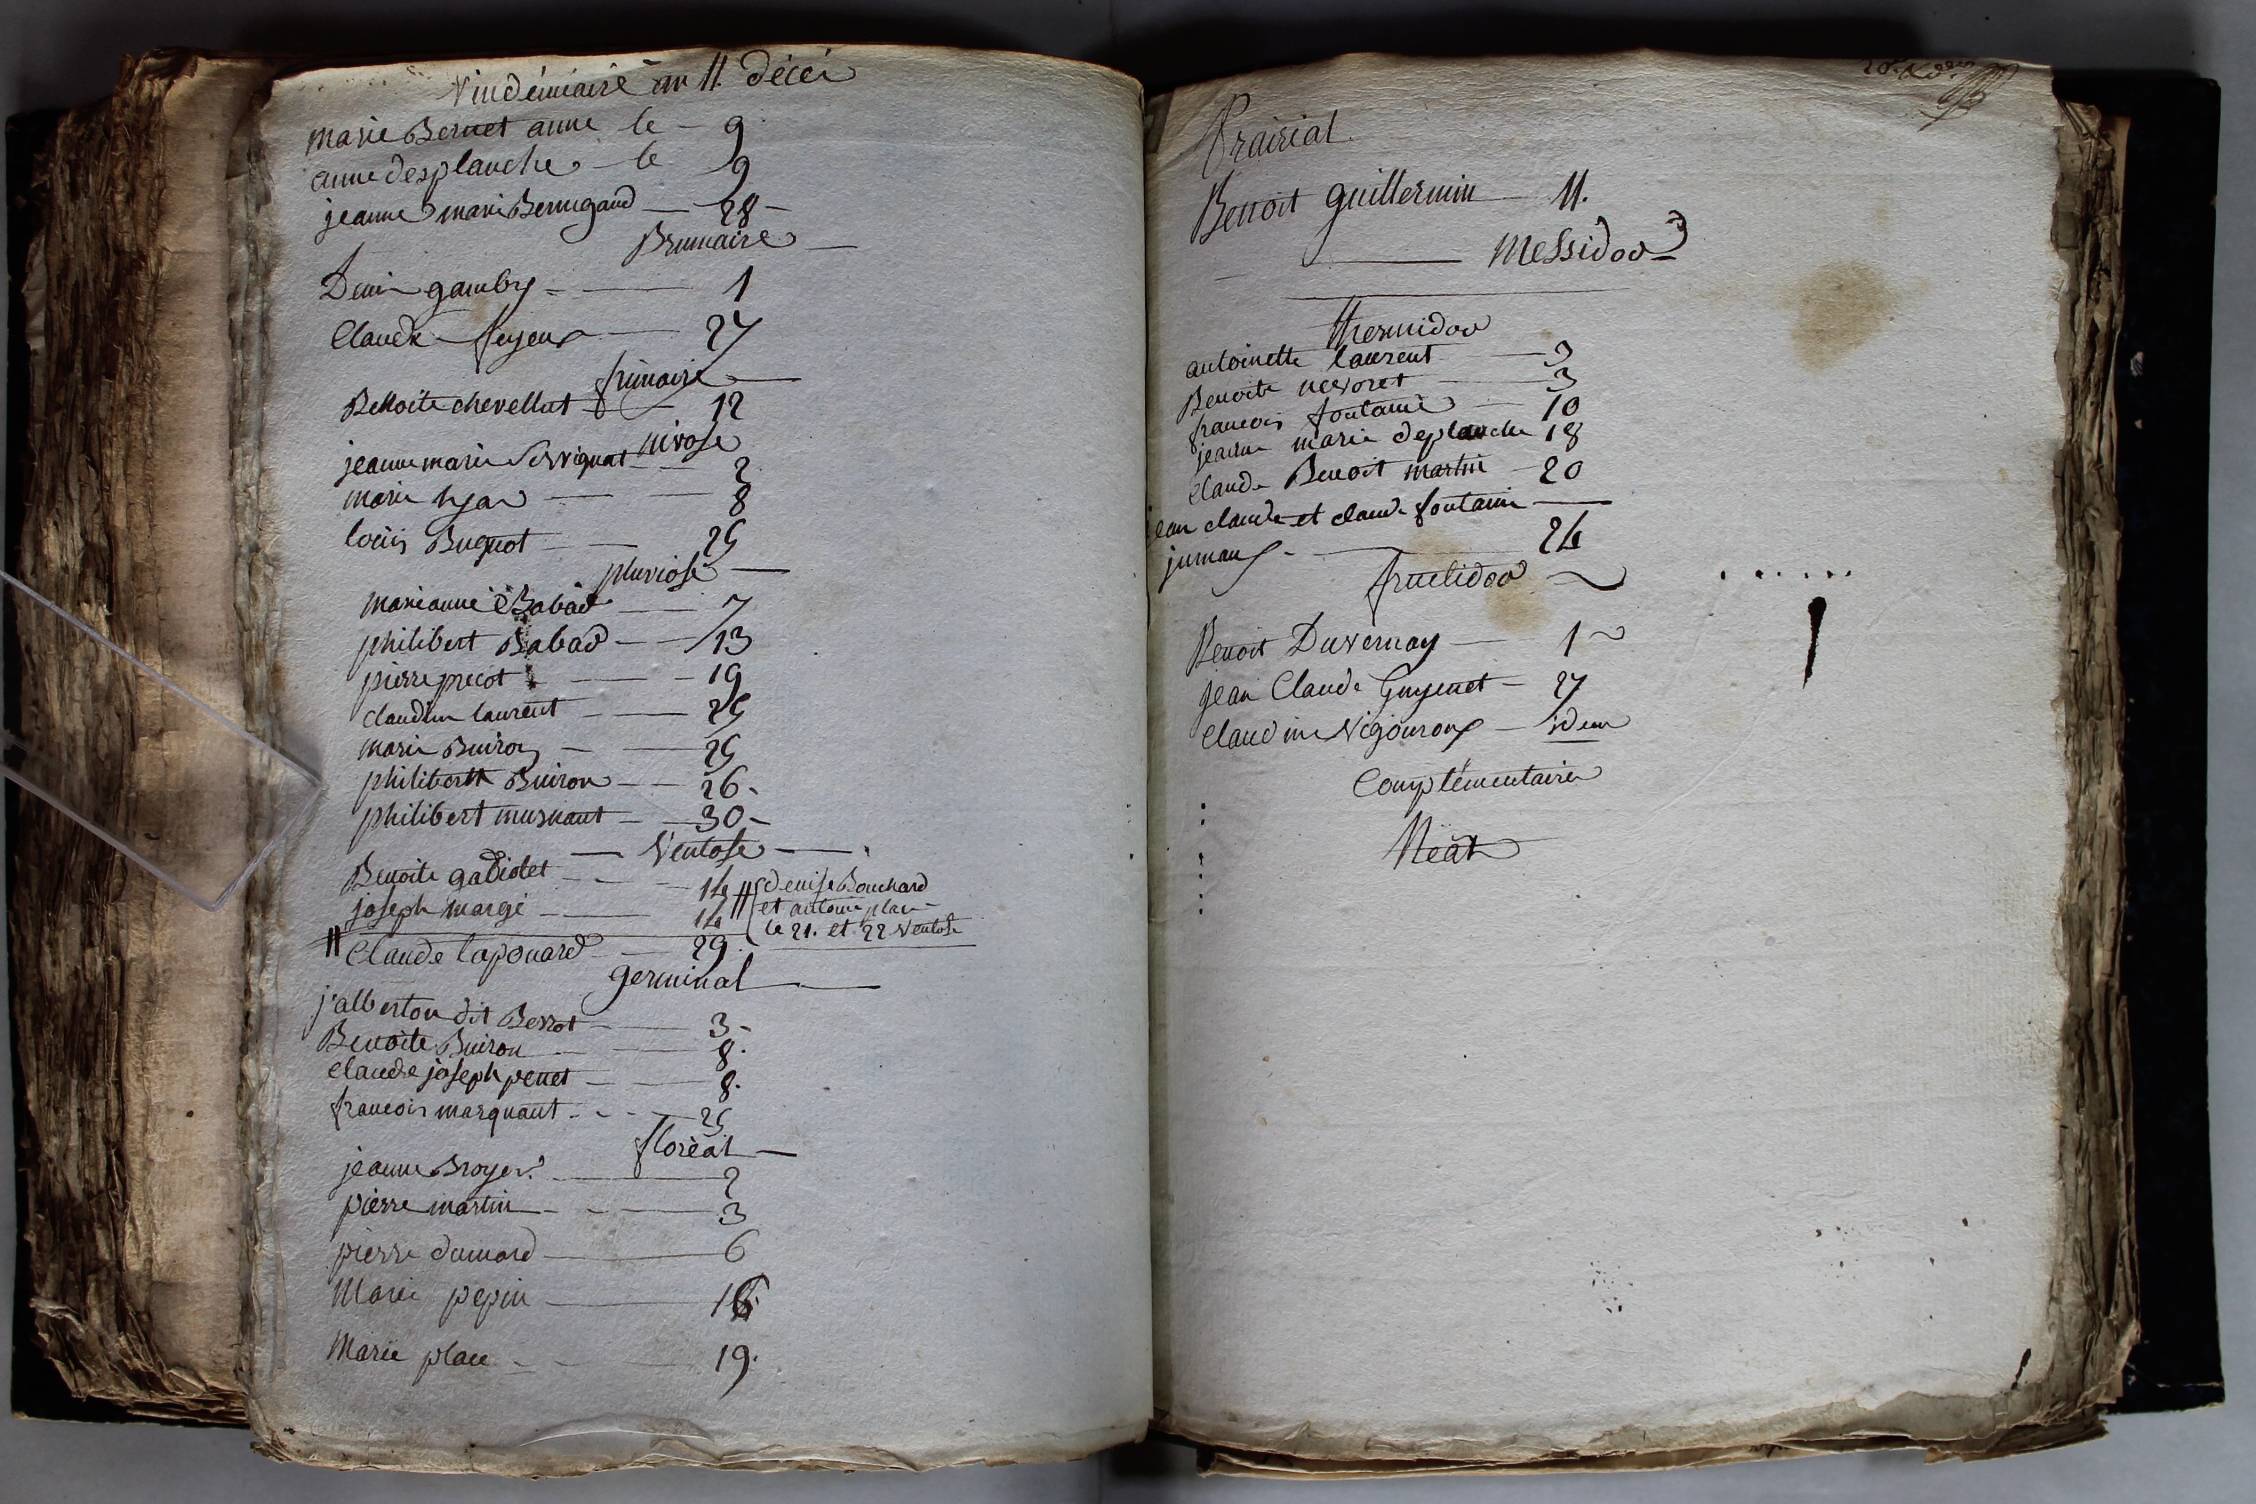 Vindémiaire an 11. décéi
marie Bernet anne le - 9.
anne desplanche - le 9
jeanne marie Bernigaud — 28 -
Brumaire —
Denis gambry - — 1
Claude feyeux — 27
frimaire —
Benoite chevellut - — 12
nivose
jeanne marie Servignat - 2
marie — — 8
loüis Buguot — — 25
pluviose —
marianne Babad — 7
philibert Babad — — 13
pierre precot — - 19
claudine laurent - — 25
marie Buiron - — 25
philiberte Buiron — - 26 -
philibert musnant — — 30 -
— Ventose —
Benoite gadiolet - - — 14
joseph margé - — 14
# denise Bouchard
et antoine place
le 21. et 22 Ventose
# Claude lapouard - — 29.
germinal —
j. alberton dit Berrot - — 3 -
Benoite Buiron - — 8.
Claude joseph penet - — 8.
francois marquant - - — 25
floréal —
jeanne Broyer. — 2
pierre martin - - — 3
pierre dumord — 6
Marie pepin — 16
Marie place - - — 19.
Prairial
Benoit guillermin — 11.
— Messidor
thermidor
antoinette laurent — 3
Benoite nevoret — 3
francois fontaine — 10
jeanne marie deplanche 18
Claude Benoit martin — 20
jean claude et claude fontaine —
jumaux - — 24
fructidor
Benoit Duvernay — 1
jean Claude Guyenet — 27
Claudine Vigouroux — idem
Complémentaires
Néant